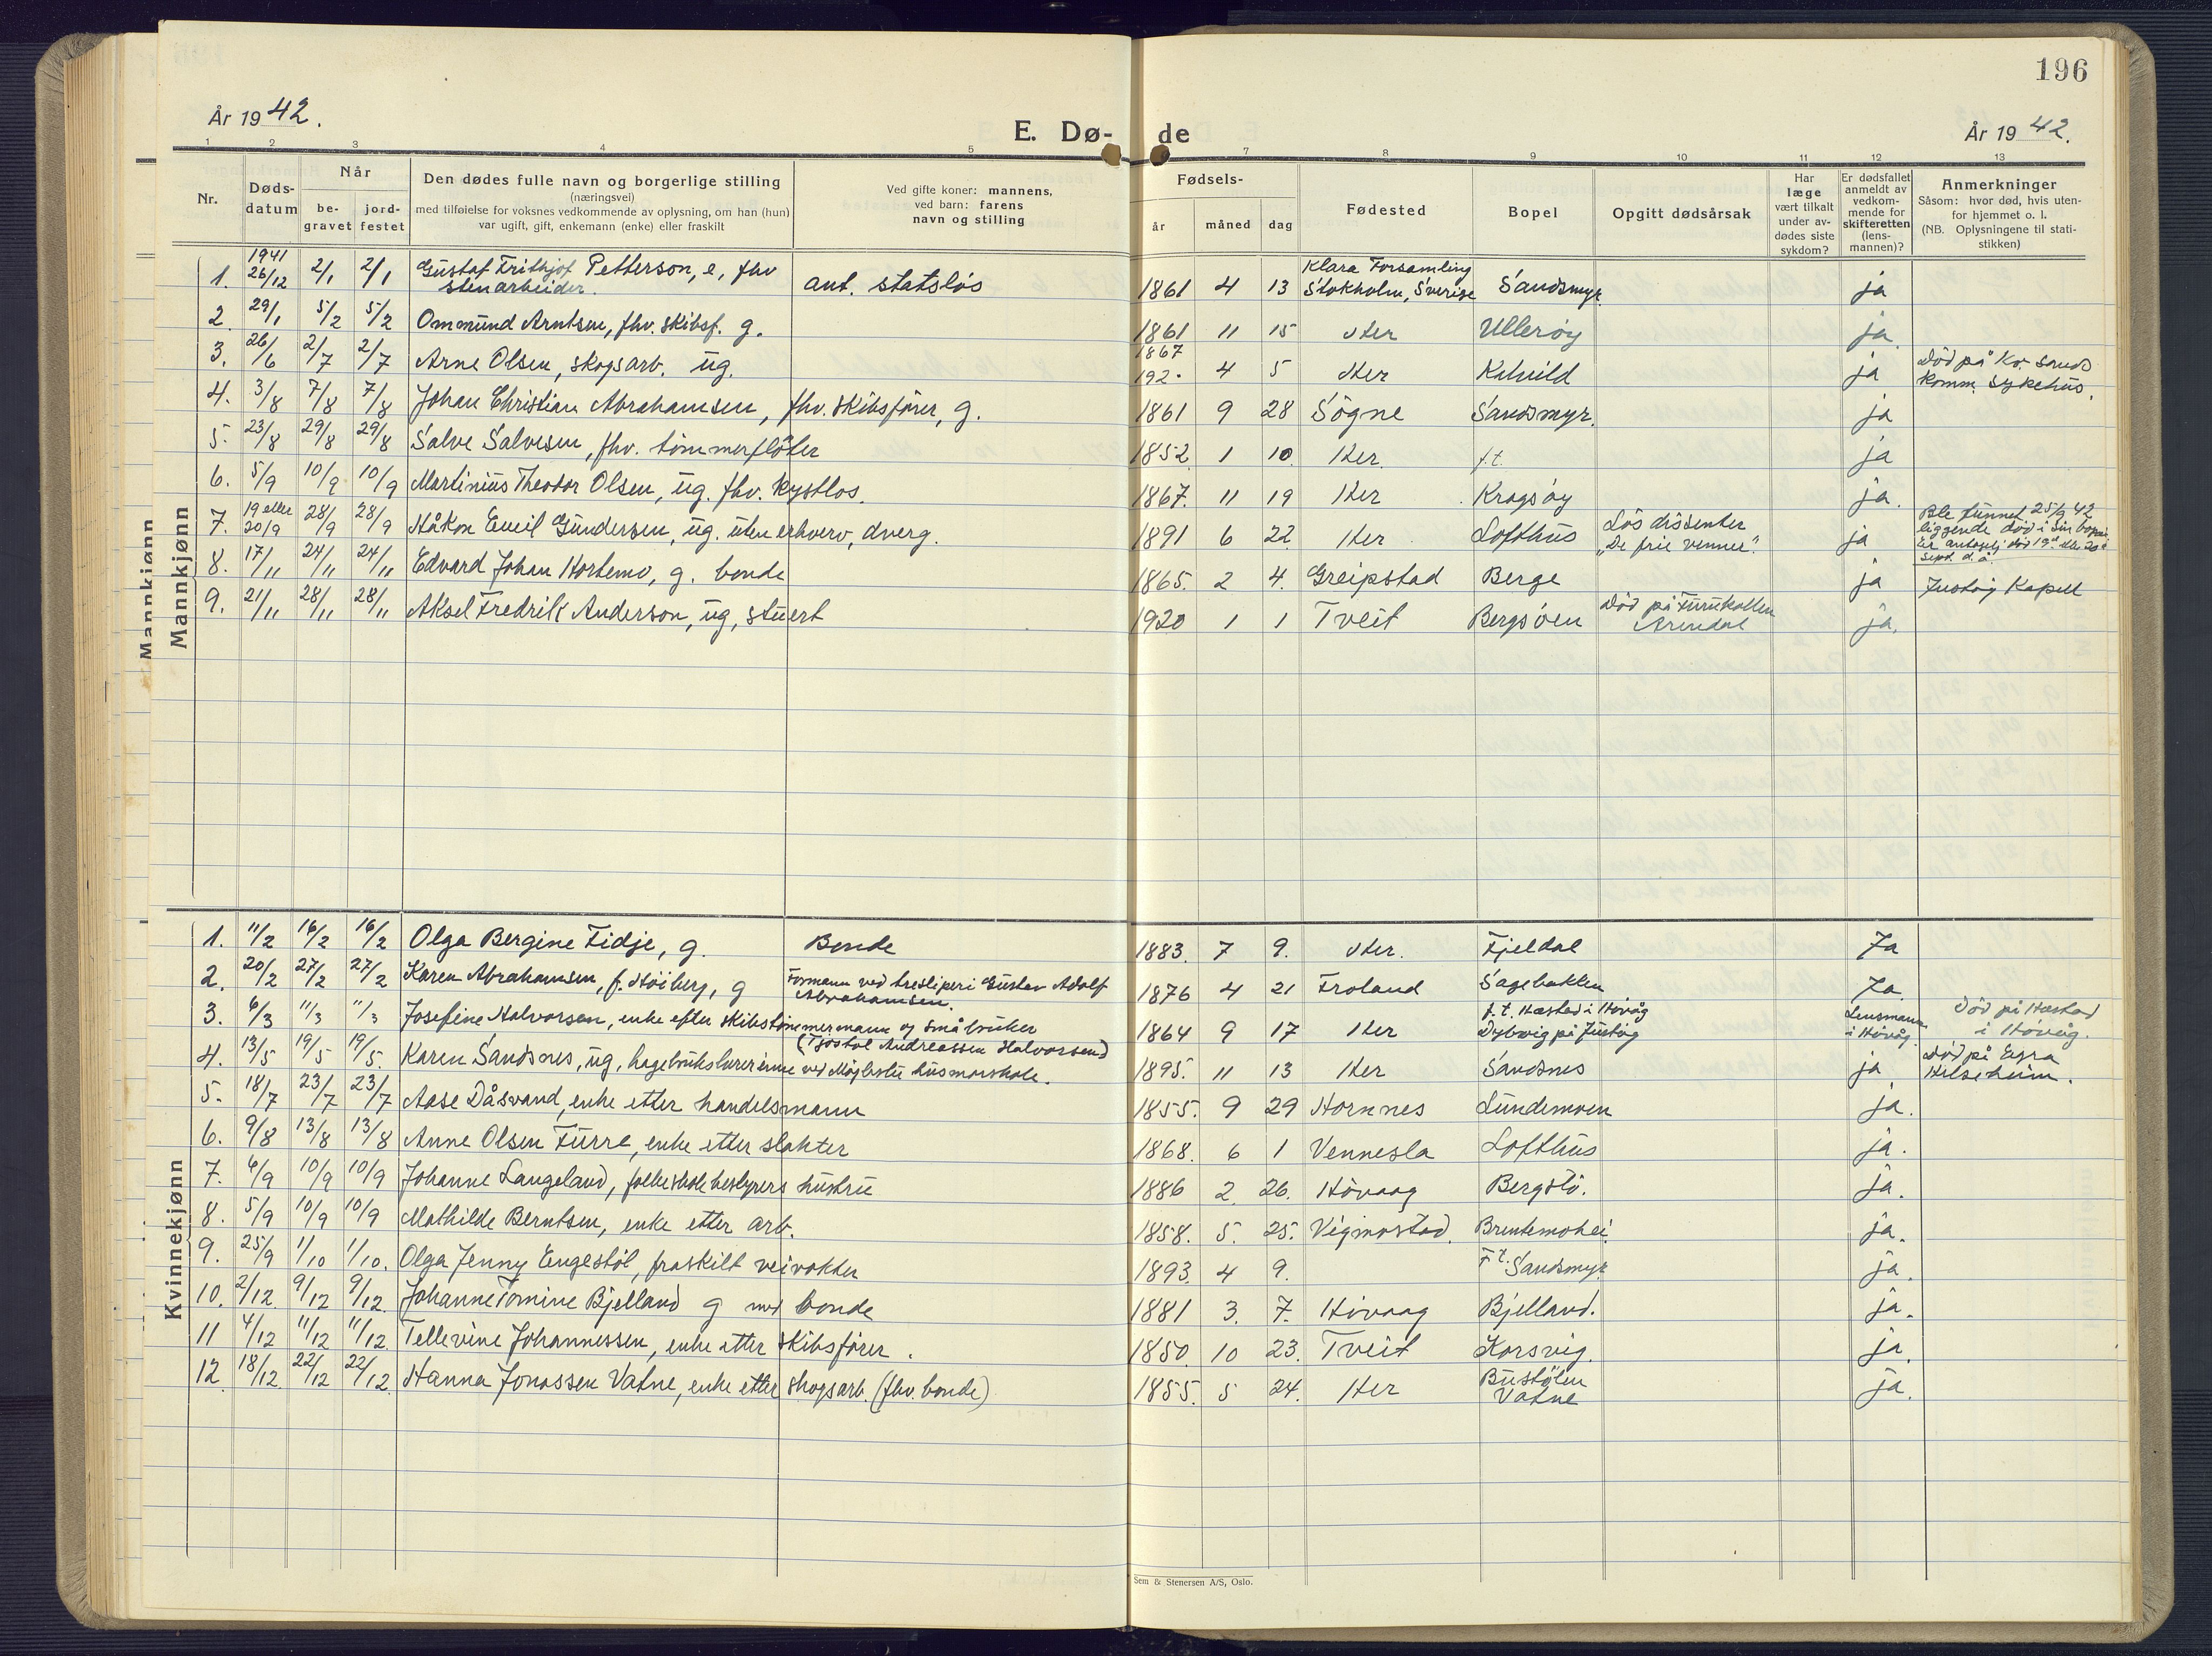 196
År 1942.
E. Dø- de
År 1942.
1 2 3 4 5 7 8 9 10 11 12 13
Nr.
Døds-
datum
Når
be-
gravet
jord-
festet
Den dødes fulle navn og borgerlige stilling
(næringsvei)
med tilføielse for voksnes vedkommende av oplysning, om han (hun)
var ugift, gift, enkemann (enke) eller fraskilt
Ved gifte koner: mannens,
ved barn: farens
navn og stilling
Fødsels-
år måned dag
Fødested
Bopel
Opgitt dødsårsak
Har
læge
vært tilkalt
under av-
dødes siste
sykdom?
Er dødsfallet
anmeldt av
vedkom-
mende for
skifteretten
(lens-
mannen)?
Anmerkninger
Såsom: hvor død, hvis uten-
for hjemmet o. l.
(NB. Oplysningene til stati-
stikken)
Mannkjønn
Mannkjønn
1941
1. 26/12 2/1 2/1 Gustaf Frithjof Petterson, e, fhv
stenarbeider. ant. statsløs 1861 4 13 Klara Forsamling
Stokholm, Sverige Sandsmyr. ja
2. 29/1 5/2 5/2 Ommund Arntsen, fhv. skibsf. g. 1861 11 15 Her Ullerøy ja.
3. 26/6 2/7 2/7 Arne Olsen, skogsarb. ug. 1867
192. 4 5 Her Kalvild ja Død på Kr. sands
komm. sykehus.
4. 3/8 7/8 7/8 Johan Christian Abrahamsen, fhv. skibsfører, g. 1861 9 28 Søgne Sandsmyr. ja
5. 23/8 29/8 29/8 Salve Salvesen, fhv. tømmerfløter 1852 1 10. Her. f.t. ja
6. 5/9 10/9 10/9 Martinius Theodor Olsen, ug. fhv. kystlos. 1867. 11 19 Her Kragsøy ja.
7. 19 eller
20/9 28/9 28/9 Håkon Emil Gundersen, ug. uten erhverv, dverg. 1891 6 22 Her Lofthus Løs dissenter
"De frie venner". ja Ble funnet 25/9 42
liggende død i sin
Er antagelig død 19de eller 20de
sept. d. å.
8. 17/11 24/11 24/11 Edvard Johan Hortemo, g. bonde 1865. 2 4. Greipstad Berge ja Justøy Kapell
9. 21/11 28/11 28/11 Aksel Fredrik Anderson, ug, stuert 1920 1 1 Tveit Bergsøen Død på Furukollen
Arendal ja.
Kvinnekjønn
1. 11/2 16/2 16/2 Olga Bergine Tidje, g. Bonde 1883. 7 9. Her. Fjeldal Ja
2. 20/2 27/2 27/2 Karen Abrahamsen, f. Høiberg, g Formann ved tresliperi Gustav Adolf
Abrahamsen. 1876 4 21 Froland Sagebakken Ja.
3. 6/3 11/3 11/3 Josefine Halvorsen, enke efter skibstømmermann og småbruker
(Tjøstol Andreassen Halvorsen) 1864 9 17 Her f. t. Hæstad i Høvåg
Dybvig på Justøy Lensmann
i Høvåg. Død på Hæstad
i Høvåg.
4. 13/5 19/5 19/5. Karen Sandsnes, ug, hagebrukslærerinne ved Møglestu husmorskole. 1895. 11 13 Her Sandsnes ja Død på Egra
Helseheim.
5. 18/7 23/7 23/7 Aase Dåsvand, enke etter handelsmann 1855. 9 29 Hornnes Lundemoen ja.
6. 9/8 13/8 13/8 Anne Olsen Furre, enke etter slakter 1868. 6 1 Vennesla Lofthus ja.
7. 6/9 10/9 10/9 Johanne Langeland, folkeskolebestyrers hustru 1886 2 26. Høvaag Bergstø. ja.
8. 5/9 10/9 10/9 Mathilde Berntsen, enke etter arb. 1858. 5. 25. Vigmostad. Brentemohei. ja.
9. 25/9 1/10 1/10. Olga Jenny Engestøl, fraskilt veivokter 1893. 4 9. F.t. Sandsmyr. ja.
10. 2/12 9/12 9/12. Johanne Tomine Bjelland g med bonde 1881 3. 7. Høvaag Bjelland. ja.
11 4/12 11/12 11/12. Tellevine Johannessen, enke etter skibsfører. 1850. 10 23. Tveit Korsvig. ja.
12 18/12. 22/12 22/12. Hanna Jonassen Vatne, enke etter skogsarb. (fhv. bonde) 1855. 5 24. Her Bustølen
Vatne ja.
Sem & Stenersen A/S, Oslo.